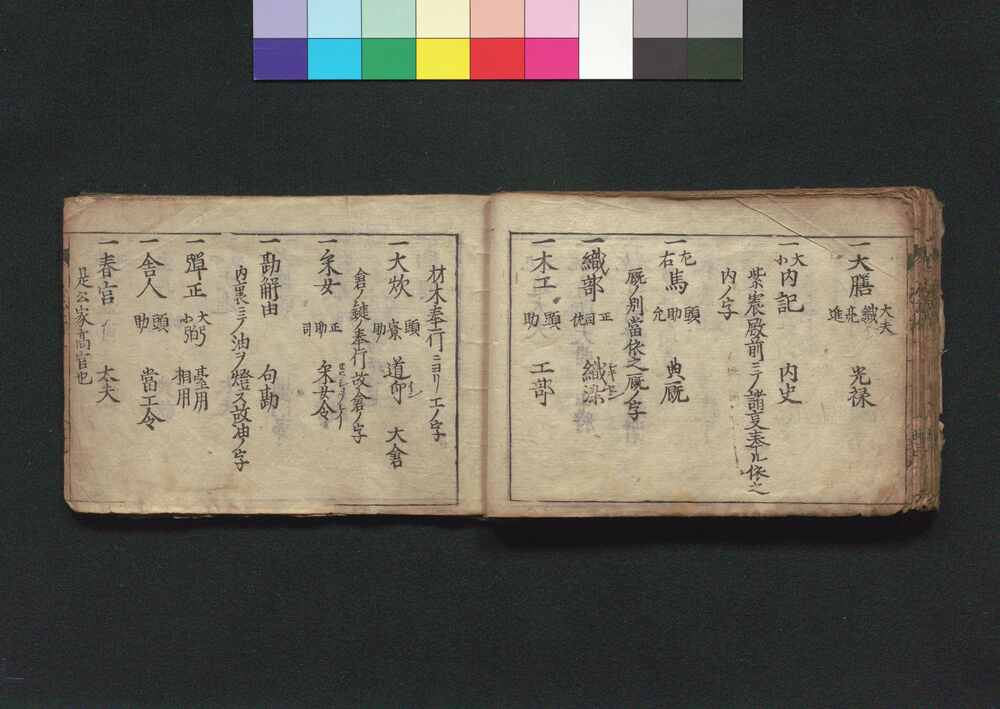 一大膳 大夫 亮 進 光禄
一大小内記 内史
紫宸殿前ニテノ諸夏奉ル依之
内ノ字
一左右馬 頭 助 允 典厩
厩ノ別當依之厩ノ字
一織部 正 佑 織染
一木工 頭 助 工部
材木奉行ニヨリ工ノ字
一大炊 頭 助 道 大倉
倉ノ鍵ノ奉行故倉ノ字
一采女 正 助 司 采女令
一勘解由 勾勘
内裏ニテノ油ヲ燈ス故油ノ字
一弾正 大弼 小弼 臺用 相用
一舎人 頭 助 當工令
一春宮 太夫
是公家高官也